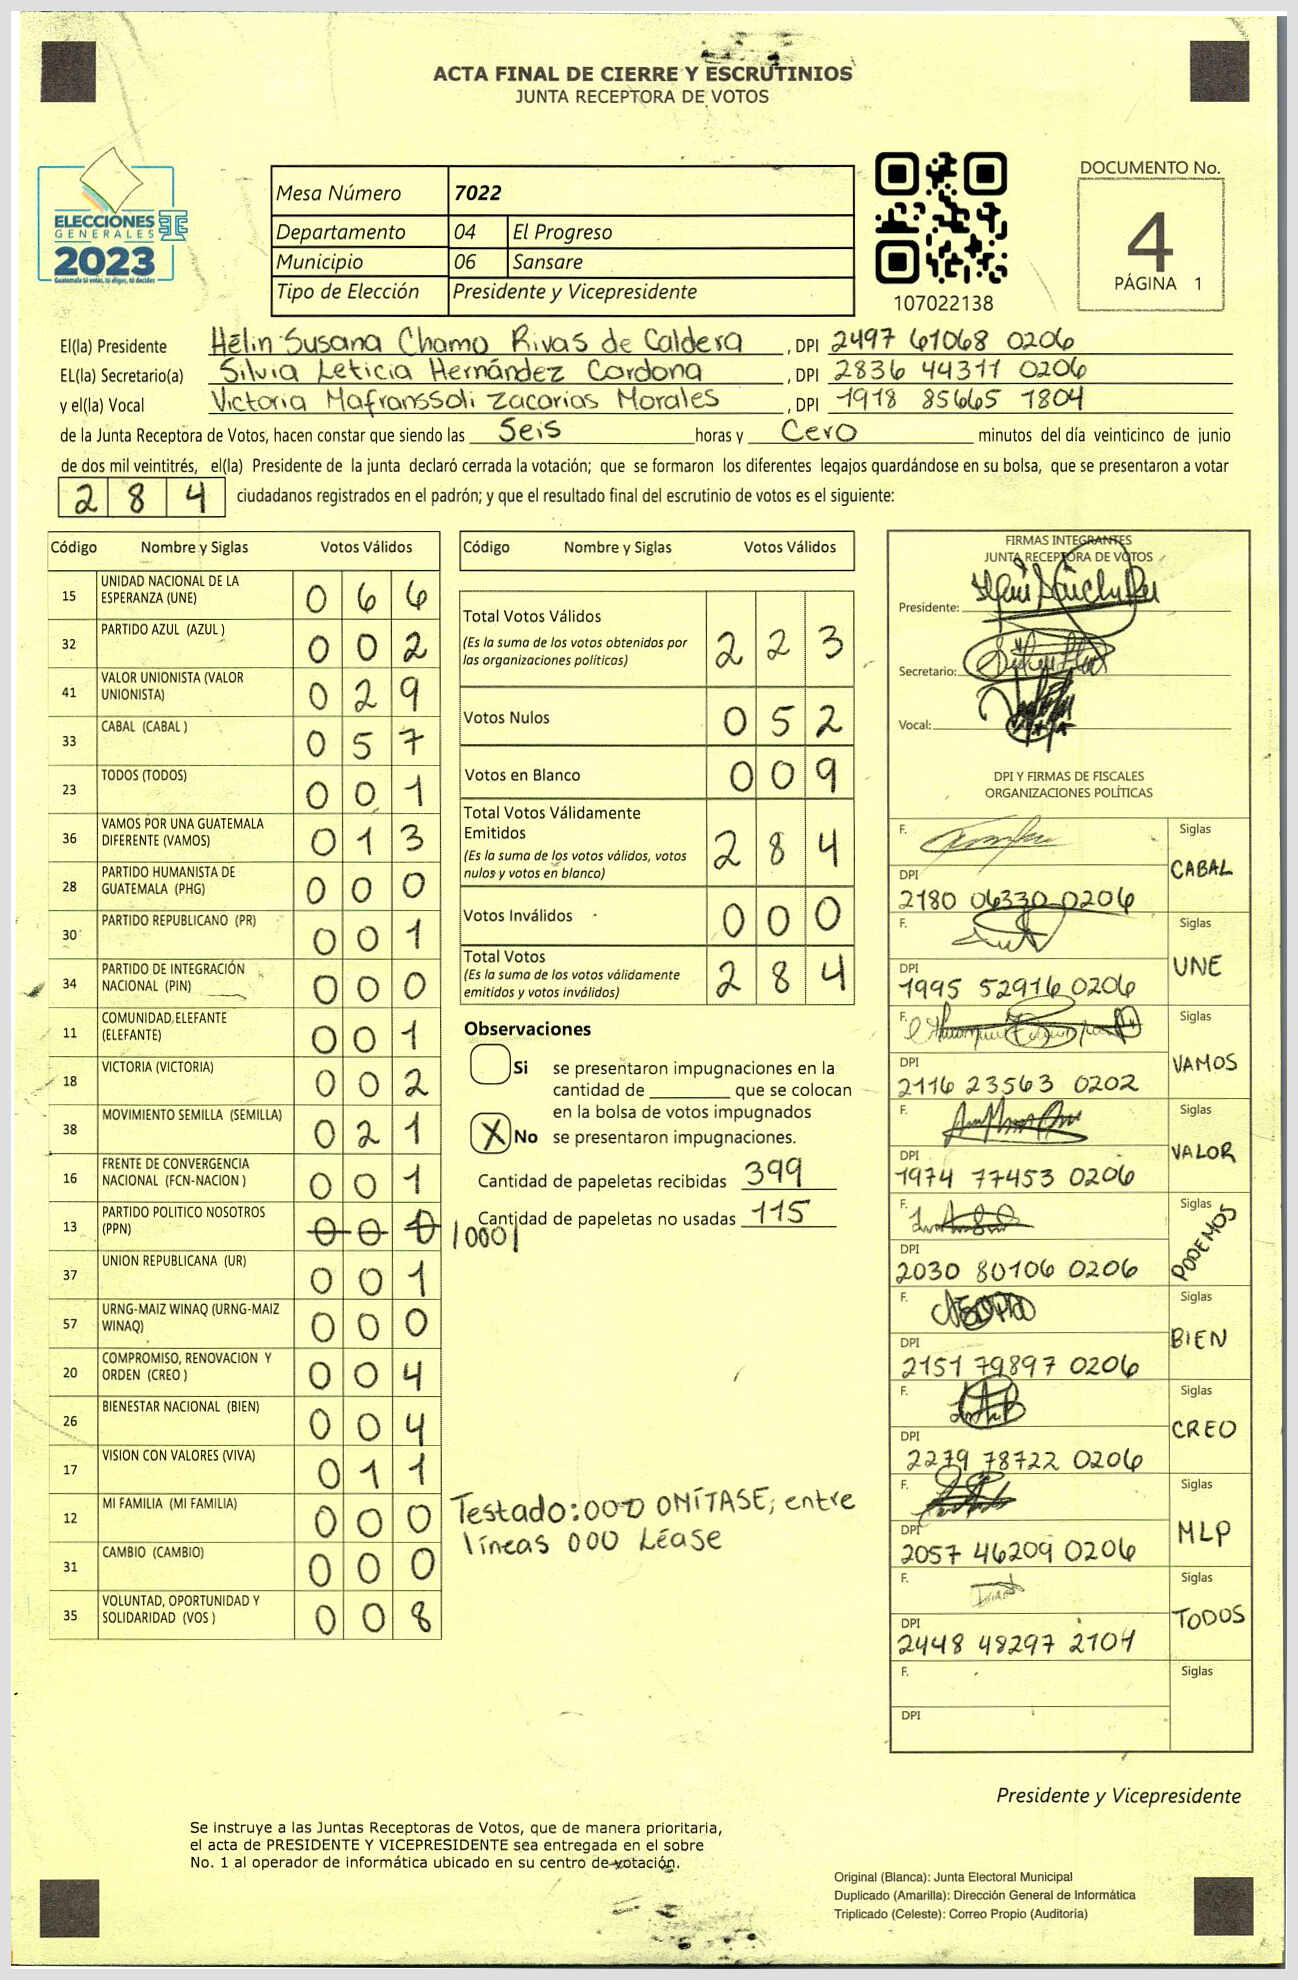 ACTA FINAL DE CIERRE Y ESCRUTINIOS
JUNTA RECEPTORA DE VOTOS
ELECCIONES
GENERALES
2023
Guatemala Si votas, tú eliges, tú decides
Mesa Número 7022
Departamento 04 El Progreso
Municipio 06 Sansare
Tipo de Elección Presidente y Vicepresidente
107022138
DOCUMENTO No.
4
PÁGINA 1
El(la) Presidente Hélin Susana Chamo Rivas de Caldera, DPI 2497 61068 0206
EL(la) Secretario(a) Silvia Leticia Hernández Cardona, DPI 2836 44311 0206
y el(la) Vocal Victoria Mafranssoli Zacarias Morales, DPI 1918 85665 1804
de la Junta Receptora de Votos, hacen constar que siendo las Seis horas y Cero minutos del día veinticinco de junio
de dos mil veintitrés, el(la) Presidente de la junta declaró cerrada la votación; que se formaron los diferentes legajos quardándose en su bolsa, que se presentaron a votar
284 ciudadanos registrados en el padrón; y que el resultado final del escrutinio de votos es el siguiente:
Código Nombre y Siglas Votos Válidos
15 UNIDAD NACIONAL DE LA ESPERANZA (UNE) 066
32 PARTIDO AZUL (AZUL ) 002
41 VALOR UNIONISTA (VALOR UNIONISTA) 029
33 CABAL (CABAL ) 057
23 TODOS (TODOS) 001
36 VAMOS POR UNA GUATEMALA DIFERENTE (VAMOS) 013
28 PARTIDO HUMANISTA DE GUATEMALA (PHG) 000
30 PARTIDO REPUBLICANO (PR) 001
34 PARTIDO DE INTEGRACIÓN NACIONAL (PIN) 000
11 COMUNIDAD ELEFANTE (ELEFANTE) 001
18 VICTORIA (VICTORIA) 002
38 MOVIMIENTO SEMILLA (SEMILLA) 021
16 FRENTE DE CONVERGENCIA NACIONAL (FCN-NACION ) 001
13 PARTIDO POLITICO NOSOTROS (PPN) 000 /000/
37 UNION REPUBLICANA (UR) 001
57 URNG-MAIZ WINAQ (URNG-MAIZ WINAQ) 000
20 COMPROMISO, RENOVACION Y ORDEN (CREO ) 004
26 BIENESTAR NACIONAL (BIEN) 004
17 VISION CON VALORES (VIVA) 011
12 MI FAMILIA (MI FAMILIA) 000
31 CAMBIO (CAMBIO) 000
35 VOLUNTAD, OPORTUNIDAD Y SOLIDARIDAD (VOS ) 008
Código Nombre y Siglas Votos Válidos
Total Votos Válidos 223
(Es la suma de los votos obtenidos por
las organizaciones políticas)
Votos Nulos 052
Votos en Blanco 009
Total Votos Válidamente
Emitidos 284
(Es la suma de los votos válidos, votos
nulos y votos en blanco)
Votos Inválidos 000
Total Votos 284
(Es la suma de los votos válidamente
emitidos y votos inválidos)
Observaciones
Si se presentaron impugnaciones en la
cantidad de ________ que se colocan
en la bolsa de votos impugnados
X No se presentaron impugnaciones.
Cantidad de papeletas recibidas 399
Cantidad de papeletas no usadas 115
Testado: 000 OMÍTASE; entre
líneas 000 Léase
FIRMAS INTEGRANTES
JUNTA RECEPTORA DE VOTOS
Presidente:
Secretario:
Vocal:
DPI Y FIRMAS DE FISCALES
ORGANIZACIONES POLÍTICAS
F. Siglas
DPI CABAL
2180 06330 0206
F. Siglas
DPI UNE
1995 52916 0206
F. Siglas
DPI VAMOS
2116 23563 0202
F. Siglas
DPI VALOR
1974 77453 0206
F. Siglas
DPI PODEMOS
2030 80106 0206
F. Siglas
DPI BIEN
2151 79897 0206
F. Siglas
DPI CREO
2279 78722 0206
F. Siglas
DPI MLP
2057 46209 0206
F. Siglas
DPI TODOS
2448 48297 2101
F. Siglas
DPI
Presidente y Vicepresidente
Se instruye a las Juntas Receptoras de Votos, que de manera prioritaria,
el acta de PRESIDENTE Y VICEPRESIDENTE sea entregada en el sobre
No. 1 al operador de informática ubicado en su centro de votación.
Original (Blanca): Junta Electoral Municipal
Duplicado (Amarilla): Dirección General de Informática
Triplicado (Celeste): Correo Propio (Auditoría)